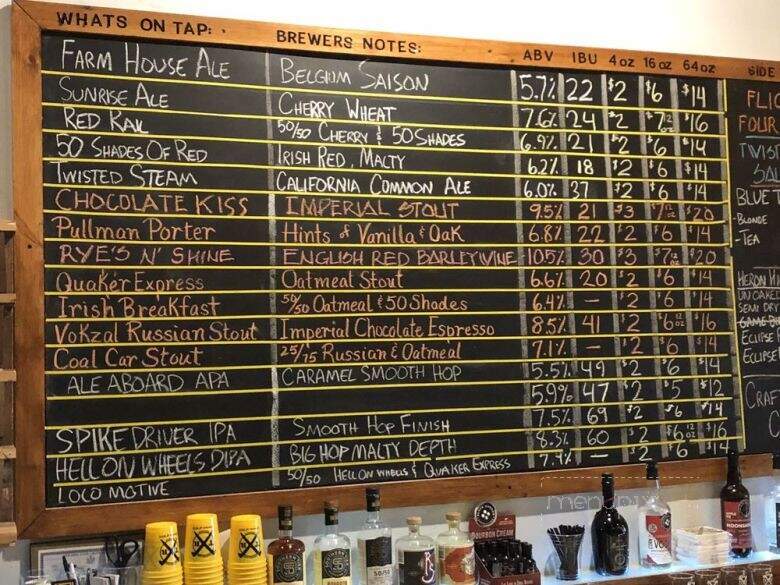 WHATS ON TAP: BREWERS NOTES: ABV IBU 4oz 16 oz 64oz SIDE
FARM HOUSE ALE BELGIUM SAISON 5.7% 22 $2 $6 $14
SUNRISE ALE CHERRY WHEAT 7.6% 24 $2 $7 12 oz $16
RED RAIL 50/50 CHERRY & 50 SHADES 6.9% 21 $2 $6 $14
50 SHADES OF RED IRISH RED, MALTY 6.2% 18 $2 $6 $14
TWISTED STEAM CALIFORNIA COMMON ALE 6.0% 37 $2 $6 $14
CHOCOLATE KISS IMPERIAL STOUT 9.5% 21 $3 $20
Pullman Porter Hints of Vanilla & Oak 6.8% 22 $2 $6 $14
RYE'S N' SHINE ENGLISH RED BARLEYWINE 10.5% 30 $3 $7 12 oz $20
Quaker Express Oatmeal Stout 6.6% 20 $2 $6 $14
Irish Breakfast 50/50 Oatmeal & 50 Shades 6.4% — $2 $6 $14
Vokzal Russian Stout Imperial Chocolate Espresso 8.5% 41 $2 $6 12 oz $16
Coal Car Stout 25/75 Russian & Oatmeal 7.1% — $2 $6 $14
ALE ABOARD APA CARAMEL SMOOTH HOP 5.5% 49 $2 $6 $14
5.9% 47 $2 $5 $12
SPIKE DRIVER IPA SMOOTH HOP FINISH 7.5% 69 $2 $6 $14
HELL ON WHEELS DIPA BIG HOP MALTY DEPTH 8.3% 60 $2 $6 12 oz $16
LOCO MOTIVE 50/50 HELL ON WHEELS & QUAKER EXPRESS 7.4% — $2 $6 $14
FLIG
FOUR
TWIST
BLUE T
-BLONDE
-TEA
HERON
SEMI DRY
ECLIPSE
ECLIPSE
CRAF
BOURBON CREAM
menupix